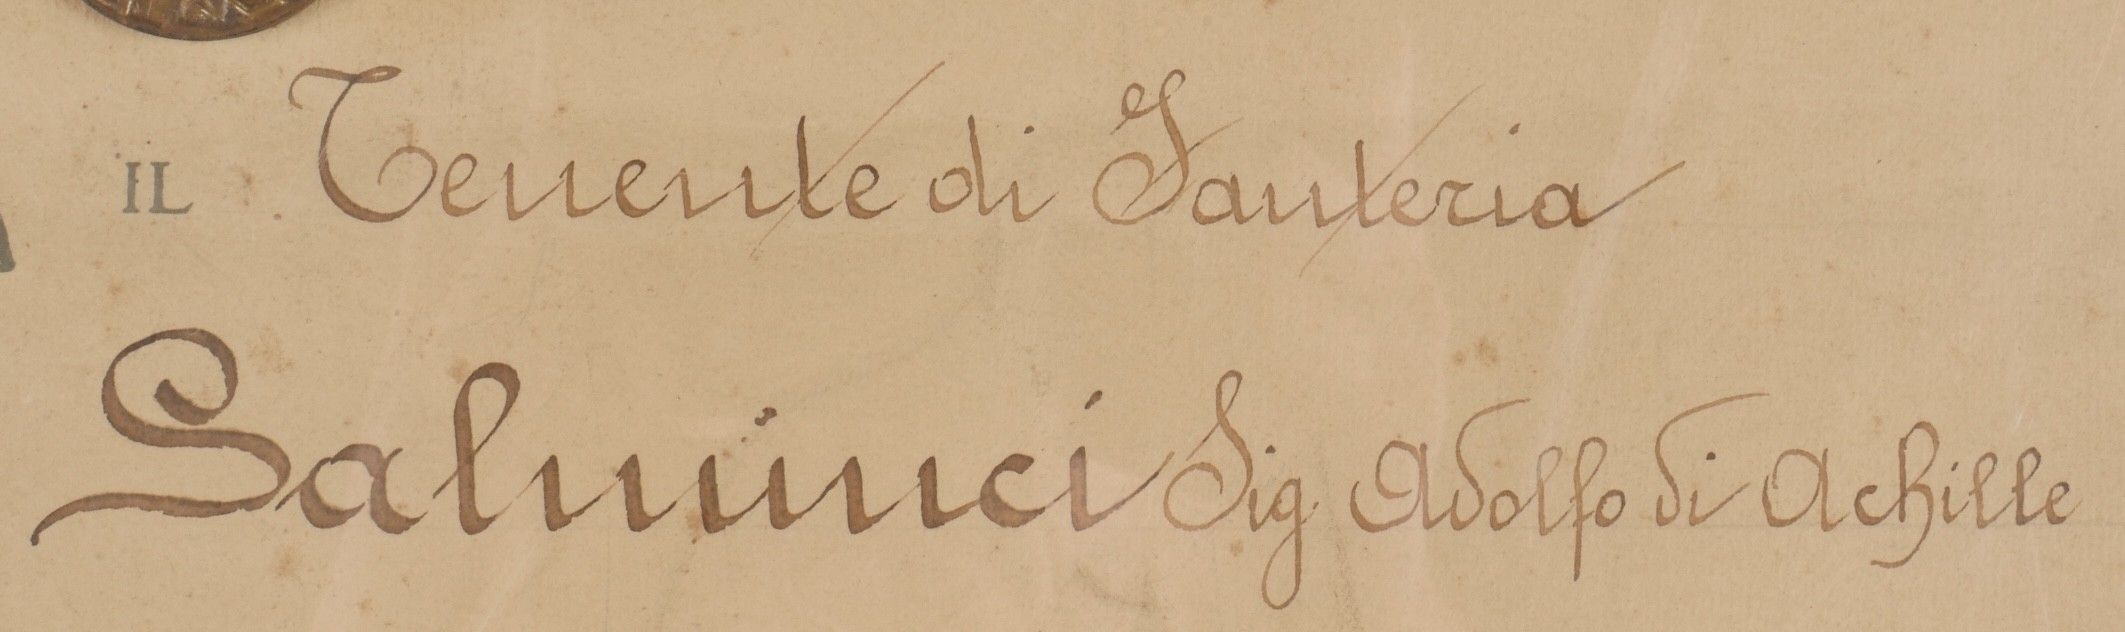 IL Tenente di Fanteria
Salminci Sig. Adolfo di Achille